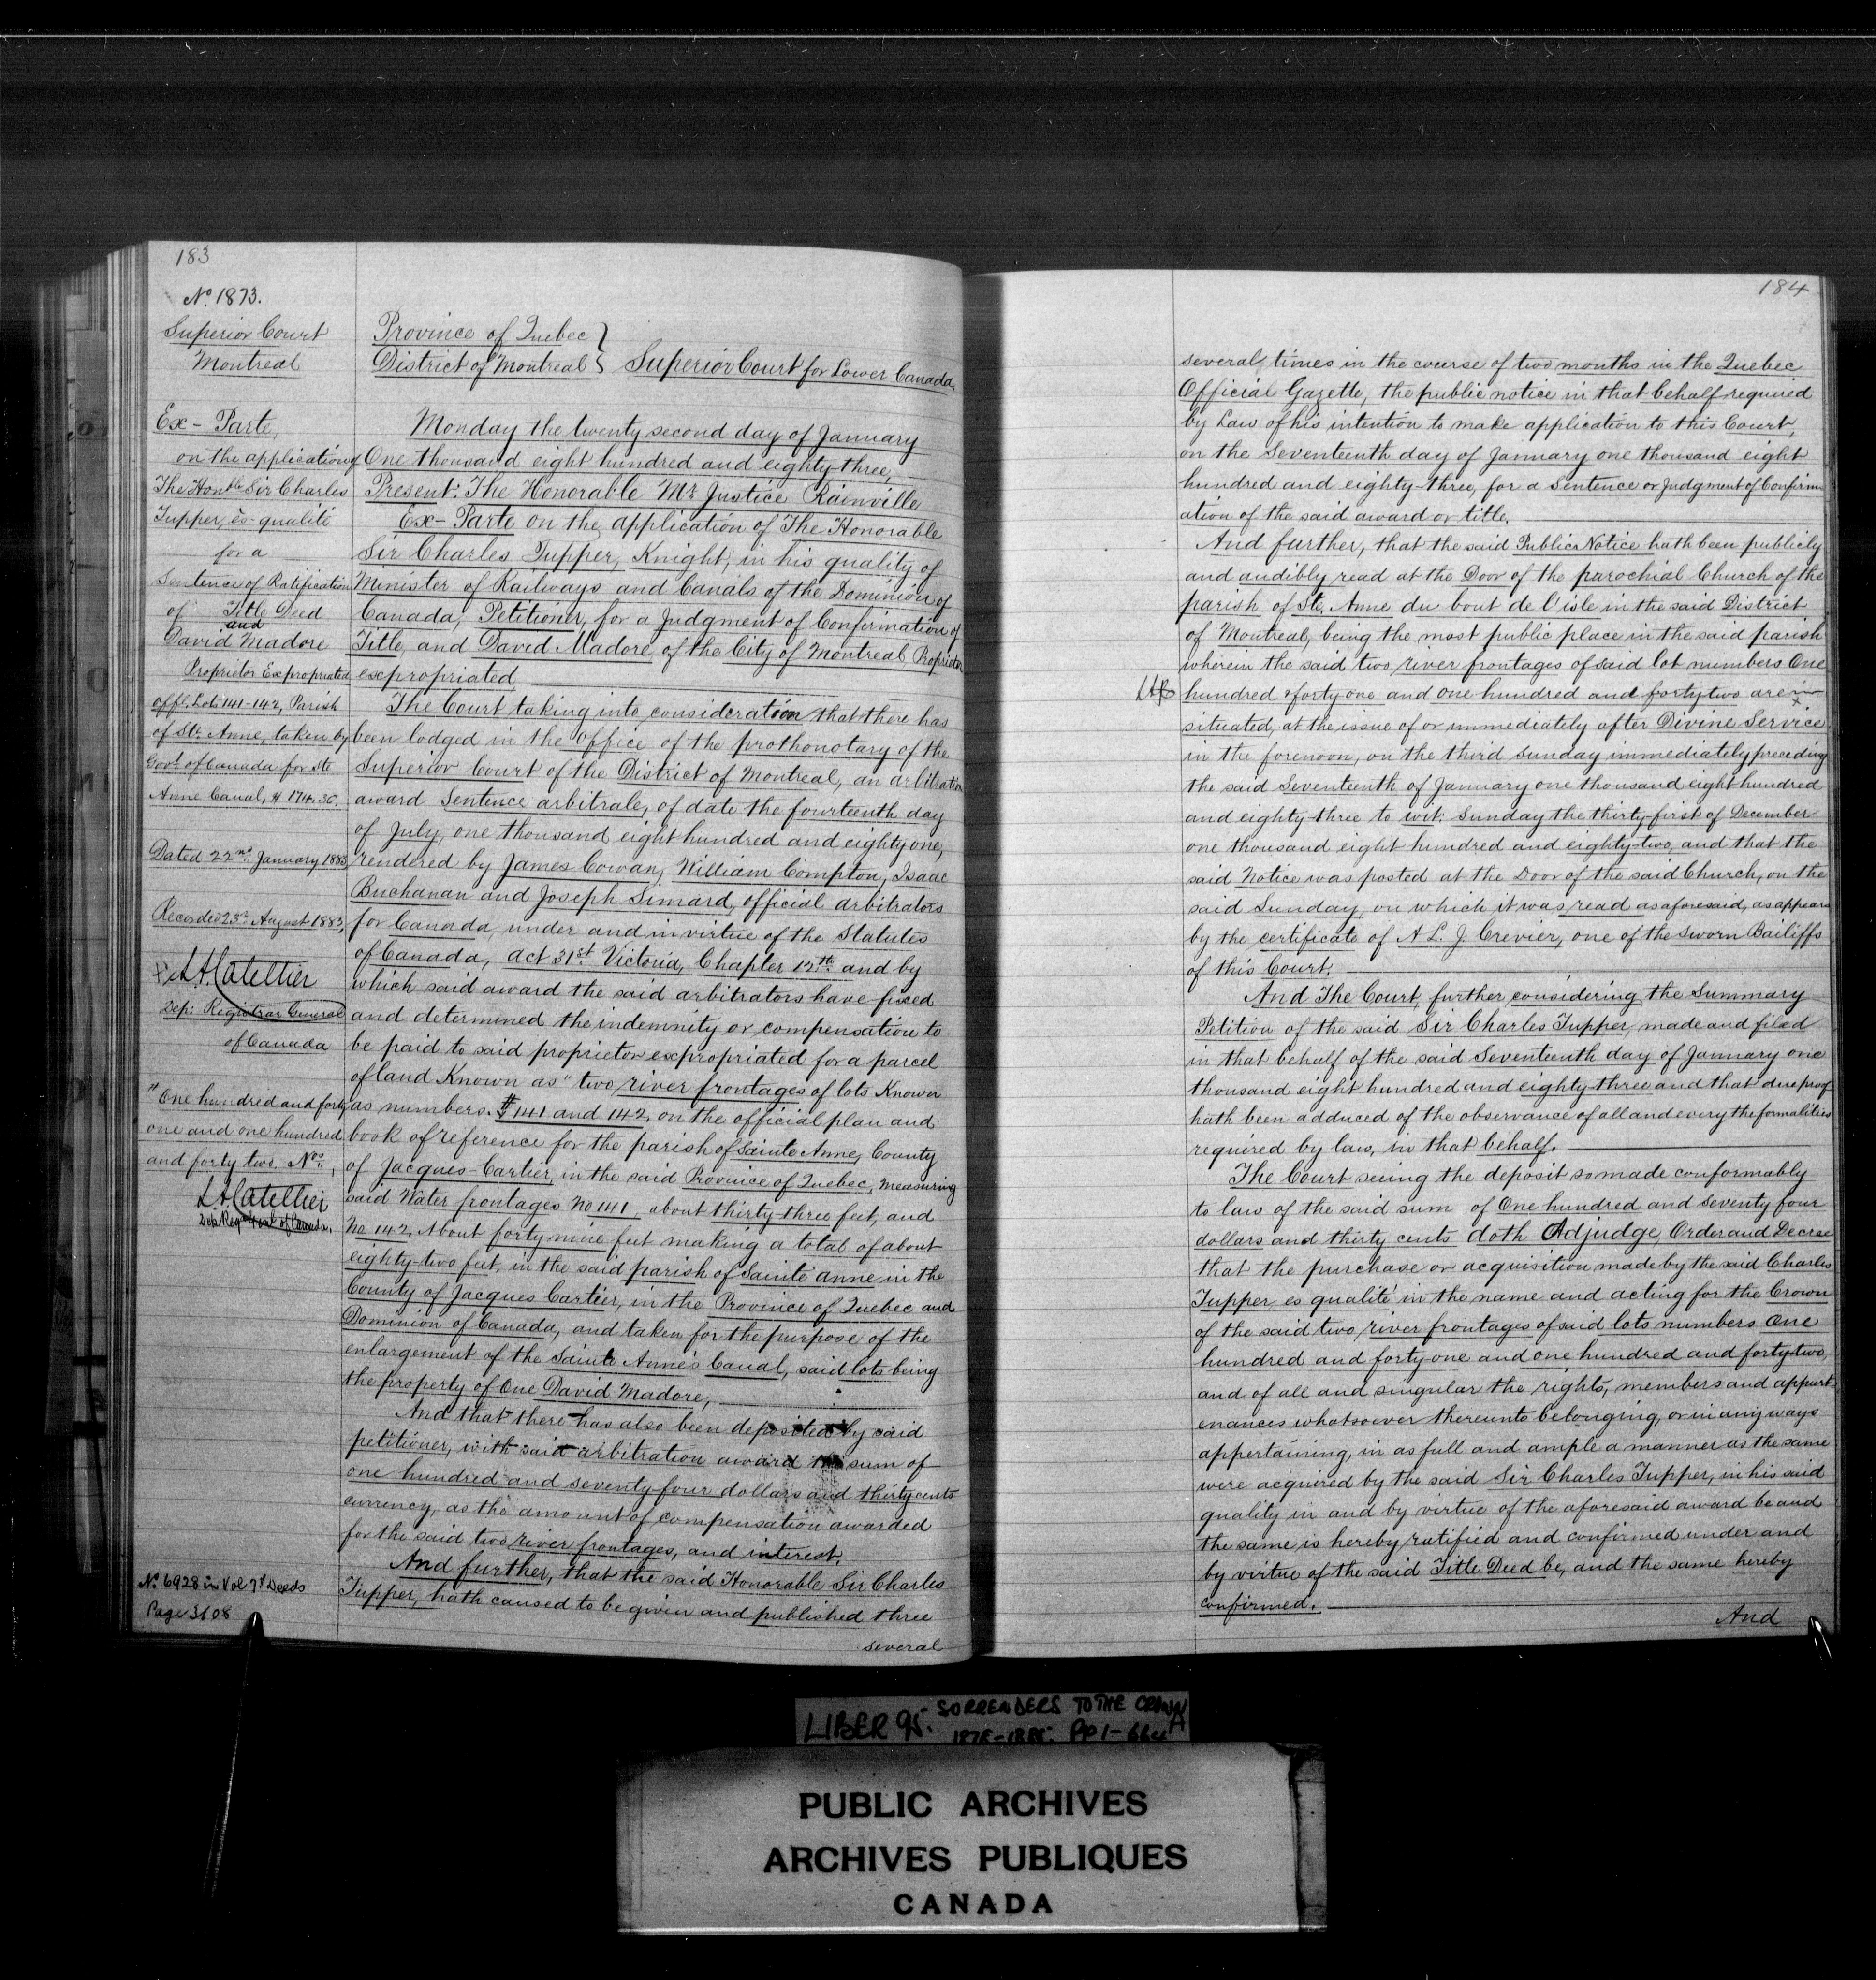 183
No. 1873.
Superior Court
Montreal
Ex-Parte,
on the application of
The Honble Sir Charles
Tupper, ès-qualité
for a
Sentence of Ratification
of Title Deed
and
David Madore
Proprietor Expropriated
off. Lots 141-142, Parish
of Ste. Anne, taken by
Govt. of Canada for Ste
Anne Canal, $174.30.
Dated 22nd January 1883
Recorded 23rd August 1883,
L.A. Catellier
Dep: Registrar General
of Canada
# One hundred and forty
one and one hundred
and forty two. Nos.,
L.A. Catellier
Dep Regr Genl of Canada.
No 6928 in Vol 71 Deeds
Page 3608
Province of Quebec }
District of Montreal } Superior Court for Lower Canada.
Monday the twenty second day of January
One thousand eight hundred and eighty-three,
Present: The Honorable Mr. Justice Rainville
Ex-Parte on the application of The Honorable
Sir Charles Tupper, Knight, in his quality of
Minister of Railways and Canals of the Dominion of
Canada, Petitioner, for a Judgment of Confirmation of
Title, and David Madore, of the City of Montreal Proprietor
expropriated
The Court taking into consideration that there has
been lodged in the office of the prothonotary of the
Superior Court of the District of Montreal, an arbitration
award Sentence arbitrale, of date the fourteenth day
of July, one thousand eight hundred and eighty one,
rendered by James Cowan, William Compton, Isaac
Buchanan and Joseph Simard, official arbitrators
for Canada, under and in virtue of the Statutes
of Canada, act 31st Victoria, Chapter 12th and by
which said award the said arbitrators have fixed
and determined the indemnity or compensation to
be paid to said proprietor expropriated for a parcel
of land Known as "two river frontages of lots Known
as numbers # 141 and 142, on the official plan and
book of reference for the parish of Sainte Anne, County
of Jacques-Cartier, in the said Province of Quebec, measuring
said Water frontages No 141, about thirty-three feet, and
No 142, About forty nine feet making a total of about
eighty-two feet, in the said parish of Sainte Anne in the
County of Jacques Cartier, in the Province of Quebec and
Dominion of Canada, and taken for the purpose of the
enlargement of the Sainte Anne's Canal, said lots being
the property of One David Madore,
And that there has also been deposited by said
petitioner, with said arbitration award the sum of
one hundred and seventy four dollars and thirty cents
currency, as the amount of compensation awarded
for the said two river frontages, and interest.
And further, that the said Honorable Sir Charles
Tupper, hath caused to be given and published three
several
184
several times in the course of two months in the Quebec
Official Gazette, the public notice in that behalf required
by Law of his intention to make application to this Court,
on the Seventeenth day of January one thousand eight
hundred and eighty-three, for a Sentence or Judgment of Confirm
ation of the said award or title.
And further, that the said Public Notice hath been publicly
and audibly read at the Door of the parochial Church of the
parish of Ste. Anne du bout de l'isle in the said District
of Montreal, being the most public place in the said parish
wherein the said two river frontages of said lot numbers One
hundred & forty one and one hundred and forty two are in
situated, at the issue of or immediately after Divine Service
in the forenoon, on the third Sunday immediately preceding
the said Seventeenth of January one thousand eight hundred
and eighty-three to wit: Sunday the thirty-first of December
one thousand eight hundred and eighty-two, and that the
said Notice was posted at the Door of the said Church, on the
said Sunday, on which it was read as aforesaid, as appears
by the certificate of A L. J. Crevier, one of the Sworn Bailiffs
of this Court.
And The Court, further considering the Summary
Petition of the said Sir Charles Tupper, made and filed
in that behalf of the said Seventeenth day of January one
thousand eight hundred and eighty-three and that due proof
hath been adduced of the observance of all and every the formalities
required by law, in that behalf.
The Court seeing the deposit so made conformably
to law of the said sum of One hundred and Seventy four
dollars and thirty cents doth Adjudge, Order and Decree
that the purchase or acquisition made by the said Charles
Tupper es qualité in the name and acting for the Crown
of the said two river frontages of said lots numbers One
hundred and forty one and one hundred and forty-two,
and of all and singular the rights, members and appurt
enances whatsoever thereunto belonging, or in any ways
appertaining, in as full and ample a manner as the same
were acquired by the said Sir Charles Tupper, in his said
quality in and by virtue of the aforesaid award be and
the same is hereby ratified and confirmed under and
by virtue of the said Title Deed be, and the same hereby
confirmed.
And
LIBER 95. SURRENDERS TO THE CROWN
PUBLIC ARCHIVES
ARCHIVES PUBLIQUES
CANADA